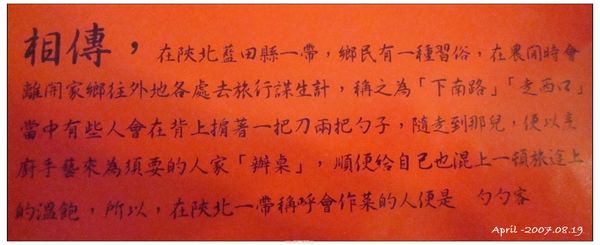 相傳，在陝北藍田縣一帶，鄉民有一種習俗，在農閒時會
離開家鄉往外地各處去旅行謀生計，稱之為「下南路」「走西口」
當中有些人會在背上揹著一把刀兩把勺子，隨走到那兒，便以烹
廚手藝來為須要的人家「辦桌」，順便給自己也混上一頓旅途上
的溫飽，所以，在陝北一帶稱呼會作菜的人便是 勺勺客
April -2007.08.19